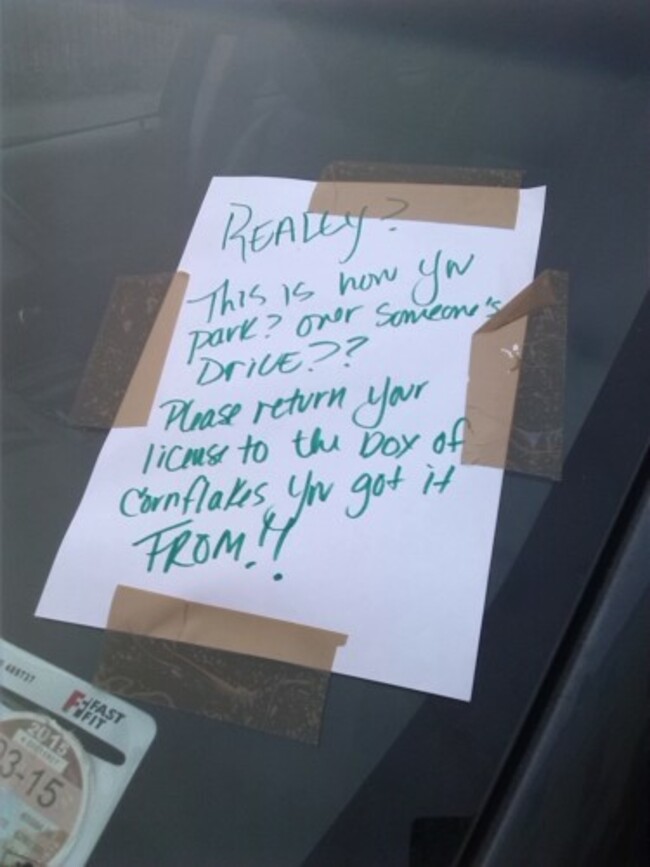 REALLY?
This is how you
park? over someone's
DRIVE??
Please return your
license to the box of
cornflakes you got it
FROM!!
FAST
FIT
2015
03-15